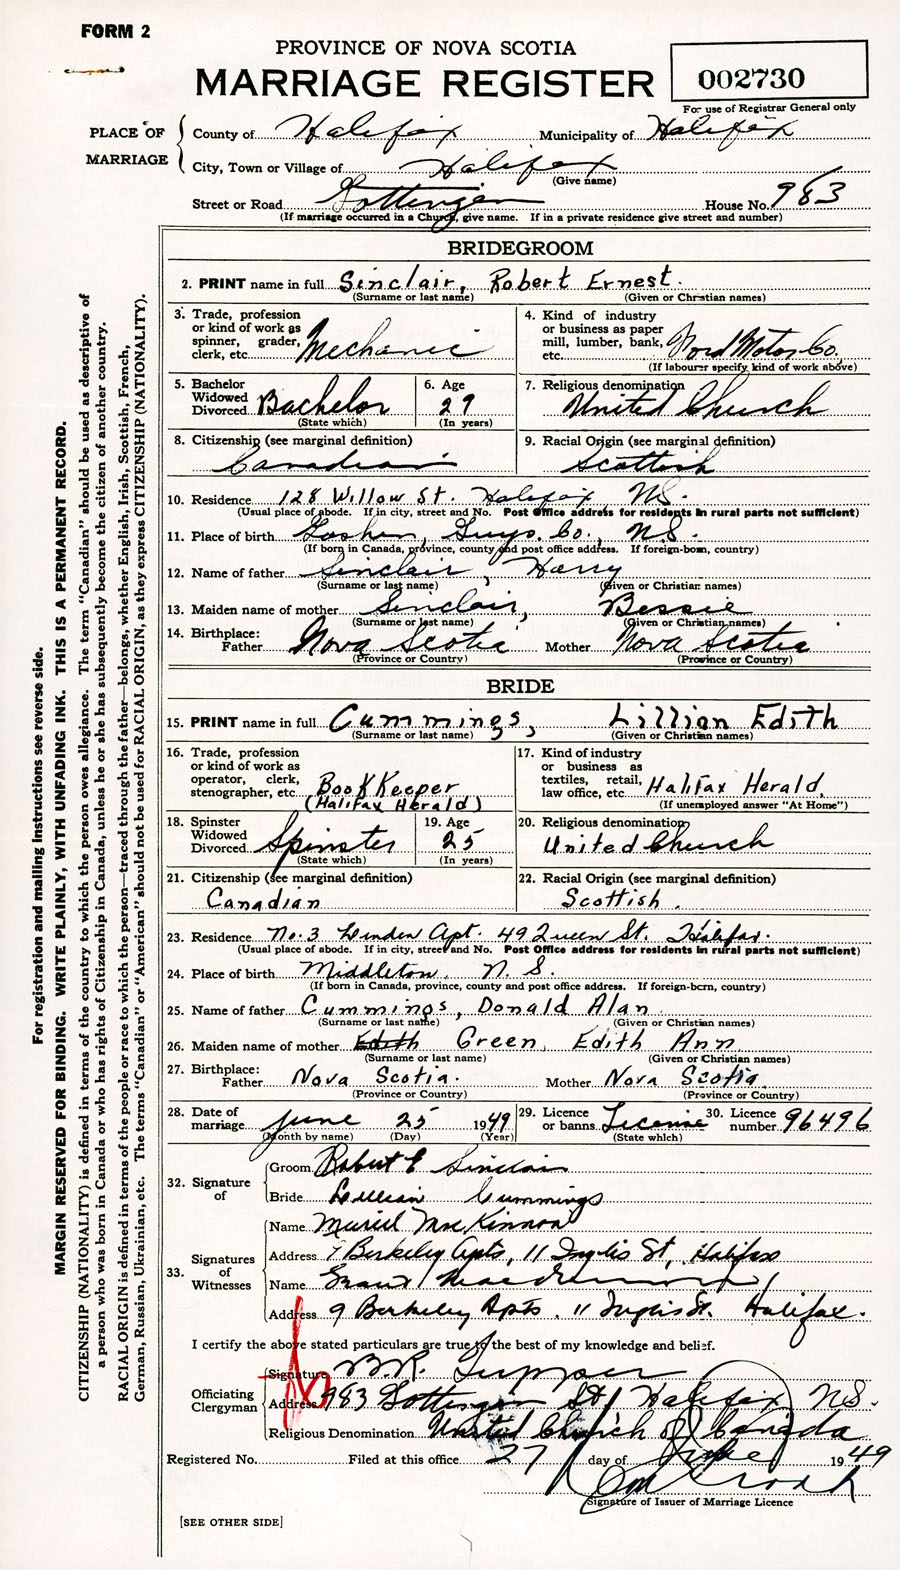 FORM 2
PROVINCE OF NOVA SCOTIA
MARRIAGE REGISTER
002730
For use of Registrar General only
PLACE OF MARRIAGE
County of Halifax Municipality of Halifax
City, Town or Village of Halifax
(Give name)
Street or Road Gottingen House No. 983
(If marriage occurred in a Church, give name. If in a private residence give street and number)
BRIDEGROOM
2. PRINT name in full Sinclair, Robert Ernest.
(Surname or last name) (Given or Christian names)
3. Trade, profession or kind of work as spinner, grader, clerk, etc. Mechanic
4. Kind of industry or business as paper mill, lumber, bank, etc. Ford Motor Co.
(If labourer specify kind of work above)
5. Bachelor Widowed Divorced Bachelor
(State which)
6. Age 29
(In years)
7. Religious denomination United Church
8. Citizenship (see marginal definition) Canadian
9. Racial Origin (see marginal definition) Scottish
10. Residence 128 Willow St. Halifax, N.S.
(Usual place of abode. If in city, street and No. Post Office address for residents in rural parts not sufficient)
11. Place of birth Goshen, Guys. Co., N.S.
(If born in Canada, province, county and post office address. If foreign-born, country)
12. Name of father Sinclair, Harry
(Surname or last name) (Given or Christian names)
13. Maiden name of mother Sinclair, Bessie
(Surname or last name) (Given or Christian names)
14. Birthplace: Father Nova Scotia Mother Nova Scotia
(Province or Country) (Province or Country)
BRIDE
15. PRINT name in full Cummings, Lillian Edith
(Surname or last name) (Given or Christian names)
16. Trade, profession or kind of work as operator, clerk, stenographer, etc. Book Keeper
(Halifax Herald)
17. Kind of industry or business as textiles, retail, law office, etc. Halifax Herald.
(If unemployed answer "At Home")
18. Spinster Widowed Divorced Spinster
(State which)
19. Age 25
(In years)
20. Religious denomination United Church
21. Citizenship (see marginal definition) Canadian
22. Racial Origin (see marginal definition) Scottish.
23. Residence No. 3 Linden Apt. 49 Queen St. Halifax.
(Usual place of abode. If in city, street and No. Post Office address for residents in rural parts not sufficient)
24. Place of birth Middleton, N. S.
(If born in Canada, province, county and post office address. If foreign-born, country)
25. Name of father Cummings, Donald Alan
(Surname or last name) (Given or Christian names)
26. Maiden name of mother Edith Green, Edith Ann
(Surname or last name) (Given or Christian names)
27. Birthplace: Father Nova Scotia. Mother Nova Scotia.
(Province or Country) (Province or Country)
28. Date of marriage June 25 1949
(Month by name) (Day) (Year)
29. Licence or banns License
(State which)
30. Licence number 96496
32. Signature of
Groom Robert E Sinclair
Bride Lillian Cummings
33. Signatures of Witnesses
Name Muriel MacKinnon
Address 9 Berkeley Apts, 11 Inglis St, Halifax
Name Grant
Address 9 Berkeley Apts. 11 Inglis St. Halifax.
I certify the above stated particulars are true to the best of my knowledge and belief.
Officiating Clergyman
Signature B.R. Tupper
Address 983 Gottingen St, Halifax, N.S.
Religious Denomination United Church of Canada
Registered No. Filed at this office 27 day of June 1949
Signature of Issuer of Marriage Licence
[SEE OTHER SIDE]
For registration and mailing instructions see reverse side.
MARGIN RESERVED FOR BINDING. WRITE PLAINLY, WITH UNFADING INK. THIS IS A PERMANENT RECORD.
CITIZENSHIP (NATIONALITY) is defined in terms of the country to which the person owes allegiance. The term "Canadian" should be used as descriptive of
a person who was born in Canada or who has rights of Citizenship in Canada, unless he or she has subsequently become the citizen of another country.
RACIAL ORIGIN is defined in terms of the people or race to which the person—traced through the father—belongs, whether English, Irish, Scottish, French,
German, Russian, Ukrainian, etc. The terms "Canadian" or "American" should not be used for RACIAL ORIGIN, as they express CITIZENSHIP (NATIONALITY).